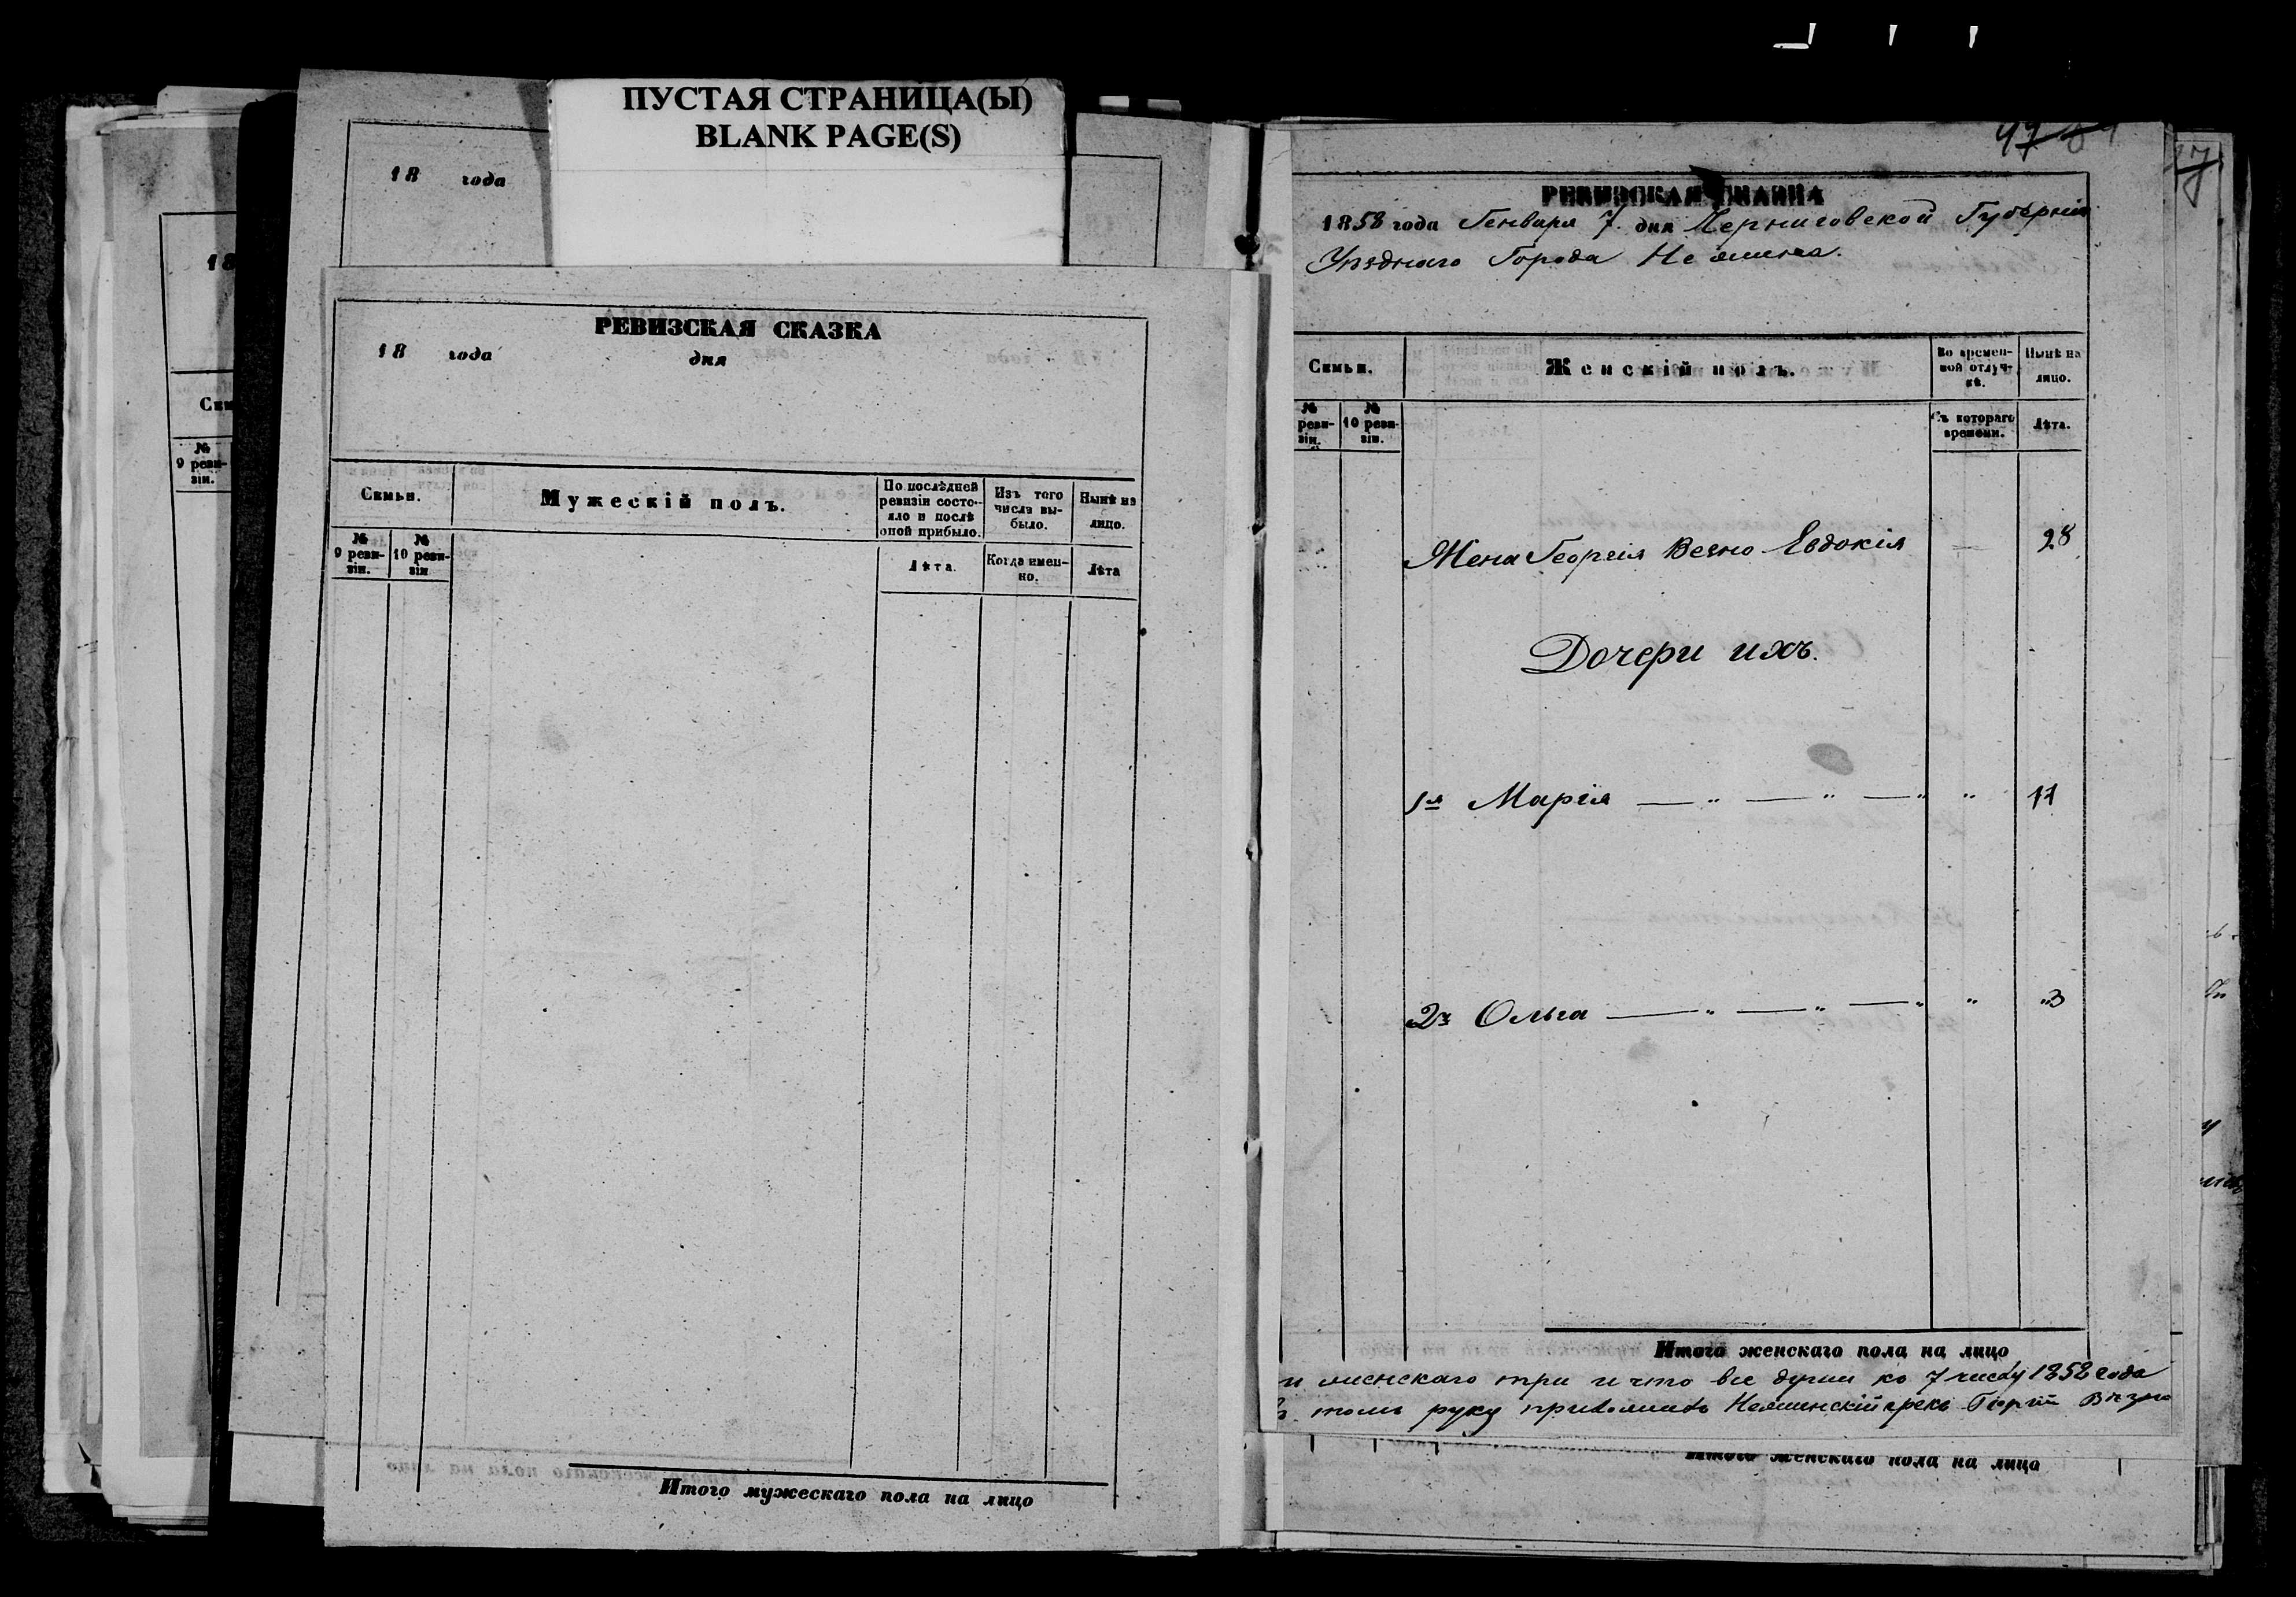 ПУСТАЯ СТРАНИЦА(Ы)
BLANK PAGE(S)
18 года
18
Сем
№
9 реви-
зіи.
РЕВИЗСКАЯ СКАЗКА
18 года дня
Семьи.
Мужескій полъ.
По послѣдней
ревизіи состо-
яло и послѣ
оной прибыло.
Изъ того
числа вы-
было.
Нынѣ на
лицо.
№
9 реви-
зіи.
№
10 реви-
зіи
Лѣта.
Когда имен-
но.
Лѣта
Итого мужескаго пола на лицо
47
РЕВИЗСКАЯ
1858 года Генваря 7. дня Черниговской Губерніи
Уѣзднаго Города Нежина.
Семьи.
Женскій полъ.
Во времен-
ной отлуч-
кѣ.
Нынѣ на
лицо.
№
реви-
зіи.
№
10 реви-
зіи.
Съ котораго
времени.
Лѣта.
Жена Георгія Везно Евдокія — 28
Дочери ихъ.
1я Марія — „ — „ — „ „ 11
2я Ольга — „ — „ — „ „ „3
Итого женскаго пола на лицо
и женскаго три и что все души ко 7 числу 1858 года
томъ руку приложилъ Нежинскій грекъ Георгій Вѣзно
Итого женскаго пола на лицо